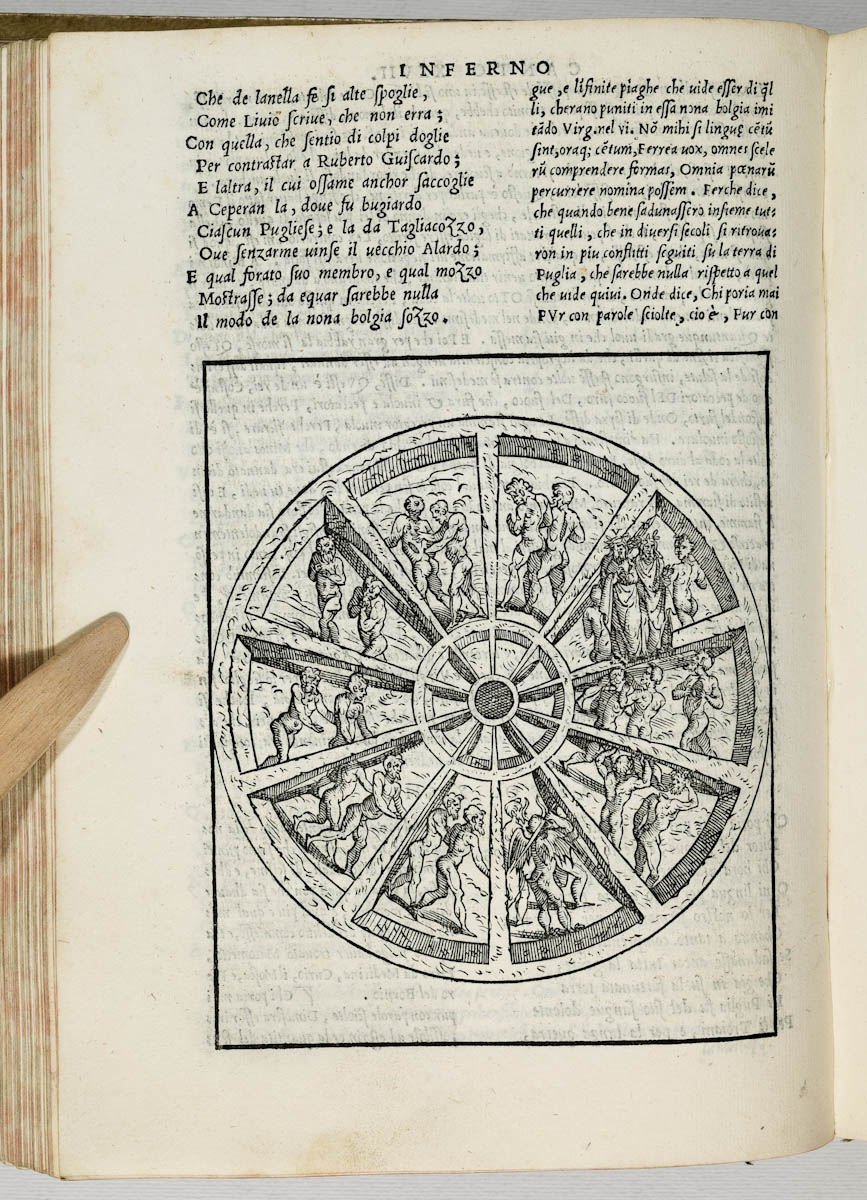 INFERNO
Che de lanella fe si alte spoglie,
Come Liuio scriue, che non erra;
Con quella, che sentio di colpi doglie
Per contrastar a Ruberto Guiscardo;
E laltra, il cui ossame anchor saccoglie
A Ceperan la, doue fu bugiardo
Ciascun Pugliese; e la da Tagliacozzo,
Oue senzarme uinse il uecchio Alardo;
E qual forato suo membro, e qual mozzo
Mostrasse; da equar sarebbe nulla
Il modo de la nona bolgia sozzo.
gue, e lifinite piaghe che uide esser di q̃l
li, cherano puniti in essa nona bolgia imi
tãdo Virg. nel vi. Nõ mihi si linguę cẽtũ
sint, oraq; cẽtum, Ferrea uox, omnes scele
rũ comprendere formas, Omnia pœnarũ
percurrere nomina possem. Perche dice,
che quando bene sadunassero insieme tut-
ti quelli, che in diuersi secoli si ritroua-
ron in piu conflitti seguiti su la terra di
Puglia, che sarebbe nulla rispetto a quel
che uide quiui. Onde dice, Chi poria mai
PVr con parole sciolte, cio è, Pur con